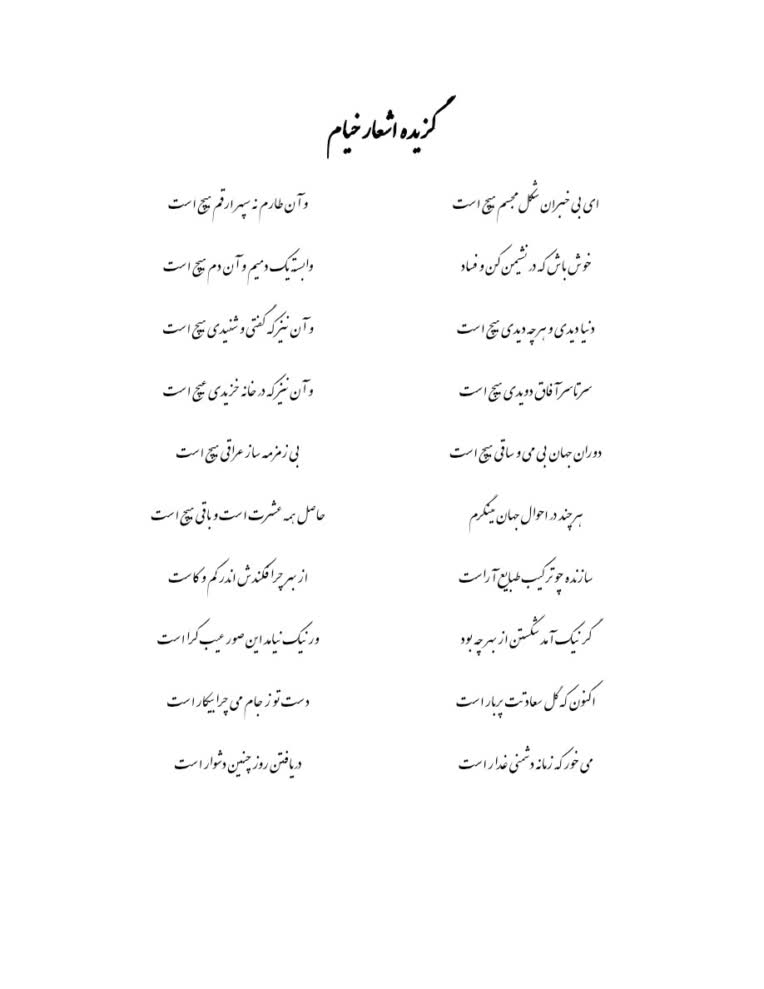 گزیده اشعار خیام
ای بی خبران شکل مجسم هیچ است وآن طارم نه سپهر ارقم هیچ است
خوش باش که در نشیمن کن و فساد وابسته یک دمیم و آن دم هیچ است
دنیا دیدی و هرچه دیدی هیچ است و آن نیز که گفتی و شنیدی هیچ است
سرتاسر آفاق دویدی هیچ است وآن نیز که در خانه خزیدی هیچ است
دوران جهان بی می و ساقی هیچ است بی زمزمه ساز عراقی هیچ است
هرچند در احوال جهان مینگرم حاصل همه عشرت است و باقی هیچ است
سازنده چو ترکیب طبایع آراست از بهر چرا فکندش اندر کم و کاست
گر نیک آمد شکستن از بهر چه بود ور نیک نیامد این صور عیب کرا است
اکنون که گل سعادتت پربار است دست تو ز جام می چرا بیکار است
می خور که زمانه دشمنی غدار است دریافتن روز چنین دشوار است